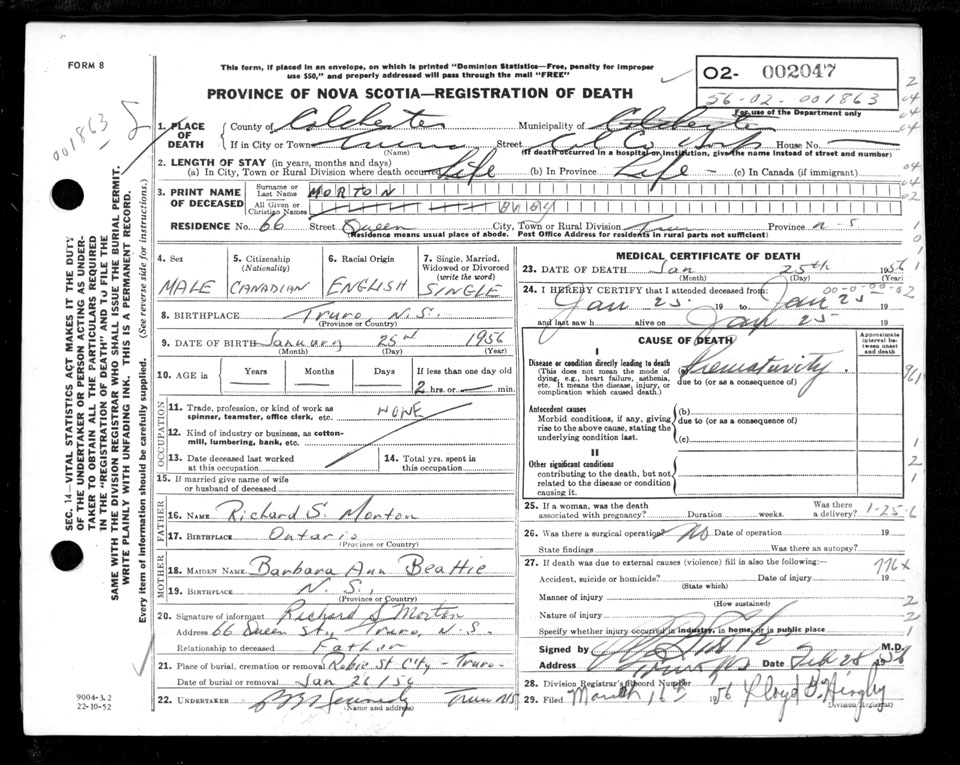 FORM 8
This form, if placed in an envelope, on which is printed "Dominion Statistics—Free, penalty for improper
use $50," and properly addressed will pass through the mail "FREE"
PROVINCE OF NOVA SCOTIA—REGISTRATION OF DEATH
02- 002047
56-02-001863
For use of the Department only
001863
1. PLACE OF DEATH
County of Colchester Municipality of Colchester
If in City or Town Truro Street Col Co Hosp House No. —
(Name) (If death occurred in a hospital or institution, give the name instead of street and number)
2. LENGTH OF STAY (in years, months and days)
(a) In City, Town or Rural Division where death occurred Life (b) In Province Life - (c) In Canada (if immigrant)
3. PRINT NAME OF DECEASED
Surname or Last Name MORTON
All Given or Christian Names BABY
RESIDENCE No. 66 Street Queen City, Town or Rural Division Truro Province N-S
(Residence means usual place of abode. Post Office Address for residents in rural parts not sufficient)
4. Sex MALE
5. Citizenship (Nationality) CANADIAN
6. Racial Origin ENGLISH
7. Single, Married, Widowed or Divorced (write the word) SINGLE
8. BIRTHPLACE Truro, N.S.
(Province or Country)
9. DATE OF BIRTH January 25th 1956
(Month) (Day) (Year)
10. AGE in Years Months Days If less than one day old
2 hrs. or — min.
OCCUPATION
11. Trade, profession, or kind of work as spinner, teamster, office clerk, etc. NONE
12. Kind of industry or business, as cotton-mill, lumbering, bank, etc.
13. Date deceased last worked at this occupation
14. Total yrs. spent in this occupation
15. If married give name of wife or husband of deceased
FATHER
16. NAME Richard S. Morton
17. BIRTHPLACE Ontario
(Province or Country)
MOTHER
18. MAIDEN NAME Barbara Ann Beattie
19. BIRTHPLACE N.S.,
(Province or Country)
20. Signature of informant Richard S Morton
Address 66 Queen St, Truro, N.S.
Relationship to deceased Father
21. Place of burial, cremation or removal Robie St City - Truro-
Date of burial or removal Jan 26/56
22. UNDERTAKER Kennedy Truro NS
(Name and address)
MEDICAL CERTIFICATE OF DEATH
23. DATE OF DEATH Jan 25th 1956
(Month) (Day) (Year)
24. I HEREBY CERTIFY that I attended deceased from:
Jan 25 19 to Jan 25 19
and last saw h alive on Jan 25 19
CAUSE OF DEATH
Approximate interval between onset and death
I
Disease or condition directly leading to death
(This does not mean the mode of dying, e.g., heart failure, asthenia, etc. It means the disease, injury, or complication which caused death.)
(a) Prematurity.
due to (or as a consequence of)
Antecedent causes
Morbid conditions, if any, giving rise to the above cause, stating the underlying condition last.
(b)
due to (or as a consequence of)
(c)
II
Other significant conditions
contributing to the death, but not related to the disease or condition causing it.
25. If a woman, was the death associated with pregnancy? Duration weeks. Was there a delivery? 1-25-6
26. Was there a surgical operation? No Date of operation 19
State findings Was there an autopsy?
27. If death was due to external causes (violence) fill in also the following:—
776x
Accident, suicide or homicide? Date of injury 19
(State which)
Manner of injury
(How sustained)
Nature of injury
Specify whether injury occurred in industry, in home, or in public place
Signed by M.D.
Address Truro NS Date Feb 28 1956
28. Division Registrar's Record Number
29. Filed March 16th 1956 Lloyd B.
(Division Registrar)
SEC. 14—VITAL STATISTICS ACT MAKES IT THE DUTY
OF THE UNDERTAKER OR PERSON ACTING AS UNDER-
TAKER TO OBTAIN ALL THE PARTICULARS REQUIRED
IN THE "REGISTRATION OF DEATH" AND TO FILE THE
SAME WITH THE DIVISION REGISTRAR WHO SHALL ISSUE THE BURIAL PERMIT.
WRITE PLAINLY WITH UNFADING INK. THIS IS A PERMANENT RECORD.
Every item of information should be carefully supplied. (See reverse side for instructions.)
9004-3.2
22-10-52